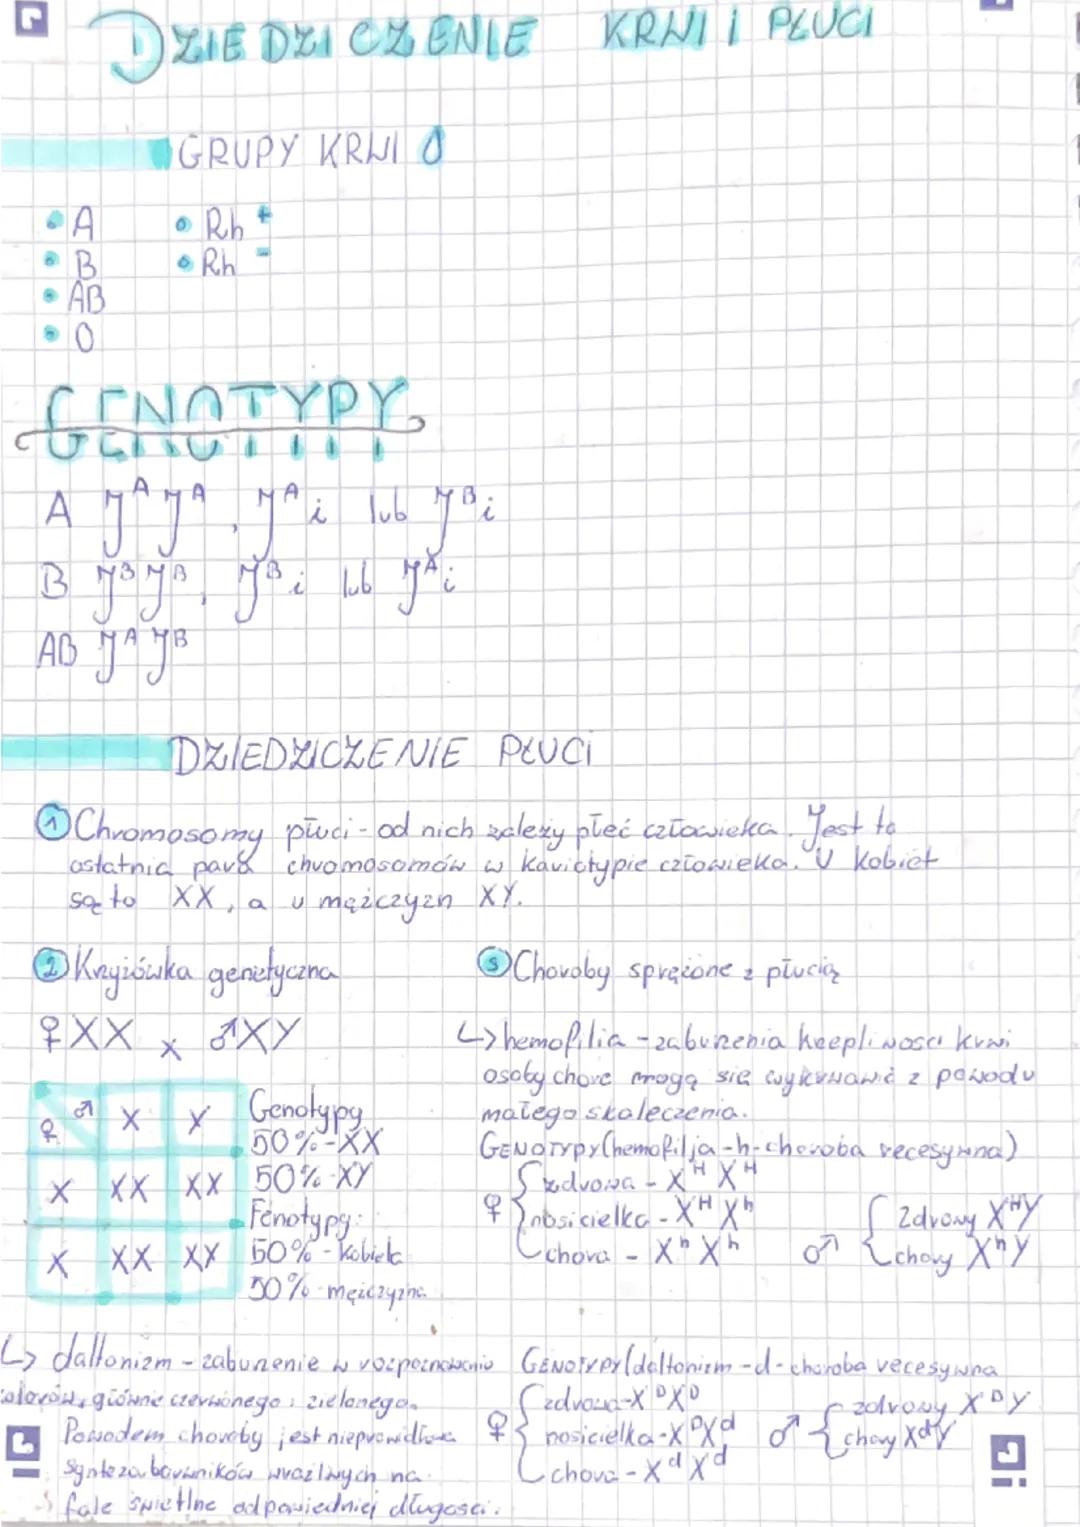 DZIEDZICZENIE KRWI I PŁUCI
GRUPY KRWI O
A
Rh +
B
Rh -
AB
O
GENOTYPY
A JᴬJᴬ, Jᴬi lub Jᴮi
B JᴮJᴮ, Jᴮi lub Jᴬi
AB JᴬJᴮ
DZIEDZICZENIE PŁUCI
1 Chromosomy płuci - od nich zależy płeć człowieka. Jest to
ostatnia para chromosomów w kariotypie człowieka. U kobiet
są to XX, a u mężczyzn XY.
2 Krzyżówka genetyczna
♀ XX x ♂ XY
♂ X Y
♀
X XX XX
X XX XX
Genotypy
50% - XX
50% - XY
Fenotypy:
50% - kobieta
50% - mężczyzna
3 Choroby sprężone z płucią
↳ hemofilia - zaburzenia krepliwosci krwi
osoby chore mogą się wykrwawić z powodu
małego skaleczenia.
GENOTYPY (hemofilja - h - choroba recesywna)
♀ { zdrowa - Xᴴ Xᴴ
nosicielka - Xᴴ Xʰ
chora - Xʰ Xʰ
♂ { zdrowy XᴴY
chory XʰY
↳ daltonizm - zaburzenie w rozpoznawaniu
kolorów, głównie czerwonego i zielonego.
Powodem choroby jest nieprawidłowa
synteza barwników wrażliwych na
fale świetlne odpowiedniej długosci.
GENOTYPY (daltonizm - d - choroba recesywna
♀ { zdrowa - XᴰXᴰ
nosicielka - XᴰXᵈ
chora - XᵈXᵈ
♂ { zdrowy XᴰY
chory XᵈY